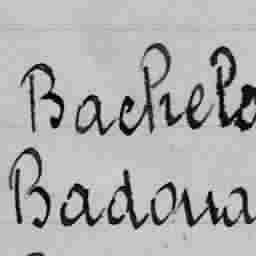 Bachelo
Badoua